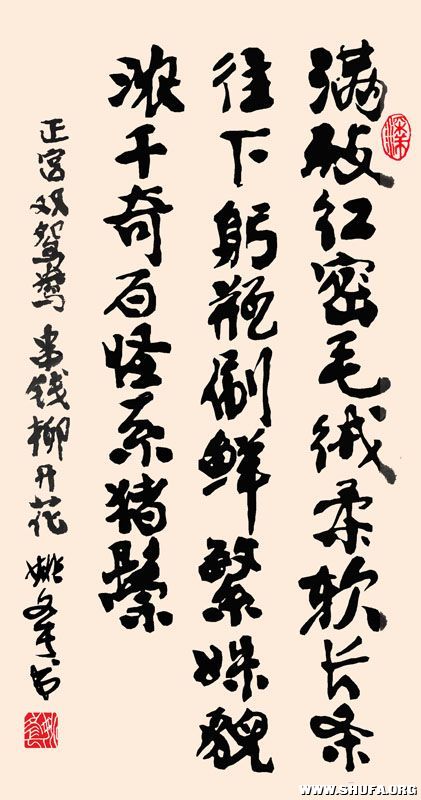 满枝红密毛绒柔软长条
往下躬瓶倒鲜繁姝貌
浓千奇百怪系猪鬃
正宫双鸳鸯 串钱柳开花 姚文书
WWW.SHUFA.ORG